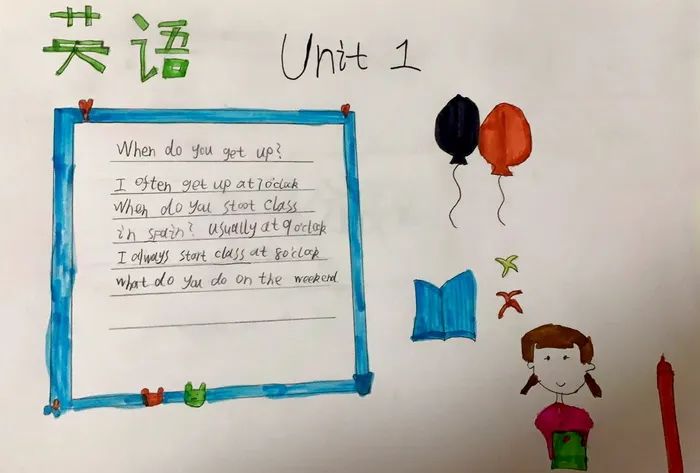 英语
Unit 1
When do you get up?
I often get up at 7o'clock
When do you stoot class
in spain? usually at 9 o'clock
I always start class at 8o'clock
what do you do on the weekend